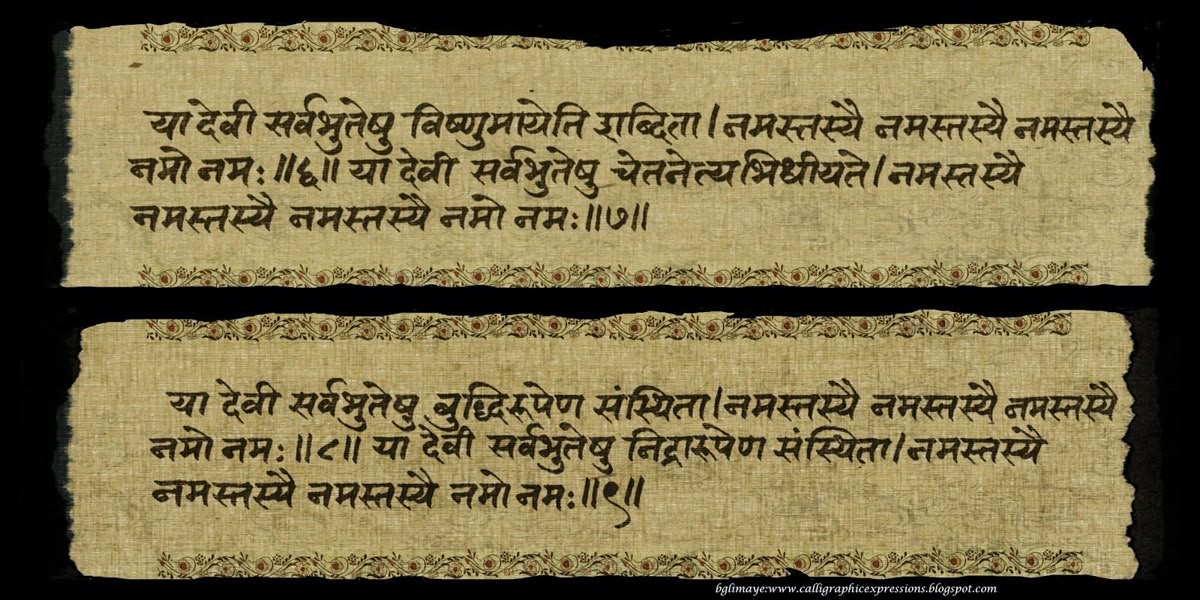 या देवी सर्वभुतेषु विष्णुमायेति शब्दिता।नमस्तस्यै नमस्तस्यै नमस्तस्यै
नमो नम:॥६॥ या देवी सर्वभुतेषु चेतनेत्यभिधीयते।नमस्तस्यै
नमस्तस्यै नमस्तस्यै नमो नम:॥७॥
या देवी सर्वभुतेषु बुद्धिरूपेण संस्थिता।नमस्तस्यै नमस्तस्यै नमस्तस्यै
नमो नम:॥८॥ या देवी सर्वभुतेषु निद्रारूपेण संस्थिता।नमस्तस्यै
नमस्तस्यै नमस्तस्यै नमो नम:॥९॥
bglimaye:www.calligraphicexpressions.blogspot.com